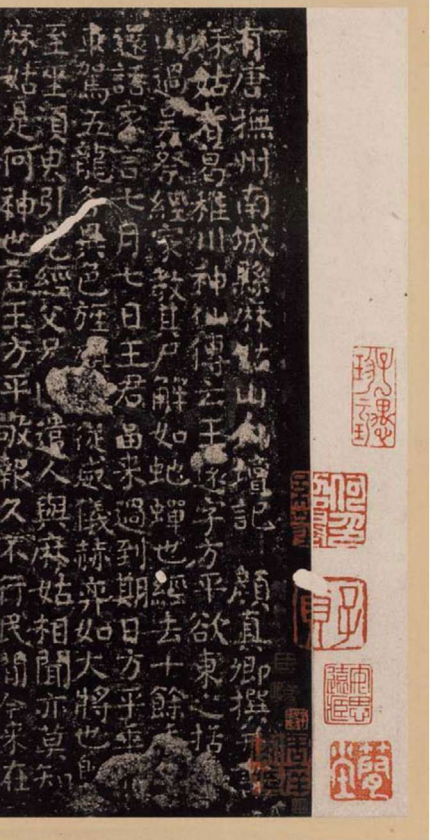 有唐撫州南城縣麻姑山仙壇記 顏真卿撰并書
麻姑者葛稚川神仙傳云王遠字方平欲東之括
山過吳蔡經家教其尸解如虵蟬也經去十餘年
還語家言七月七日王君當來過到期日方平乘
駕五龍各異色旌旗從威儀赫弈如大將也
至坐須臾引見經父兄遣人與麻姑相聞亦莫知
麻姑是何神也言王方平敬報久不行民間今來在